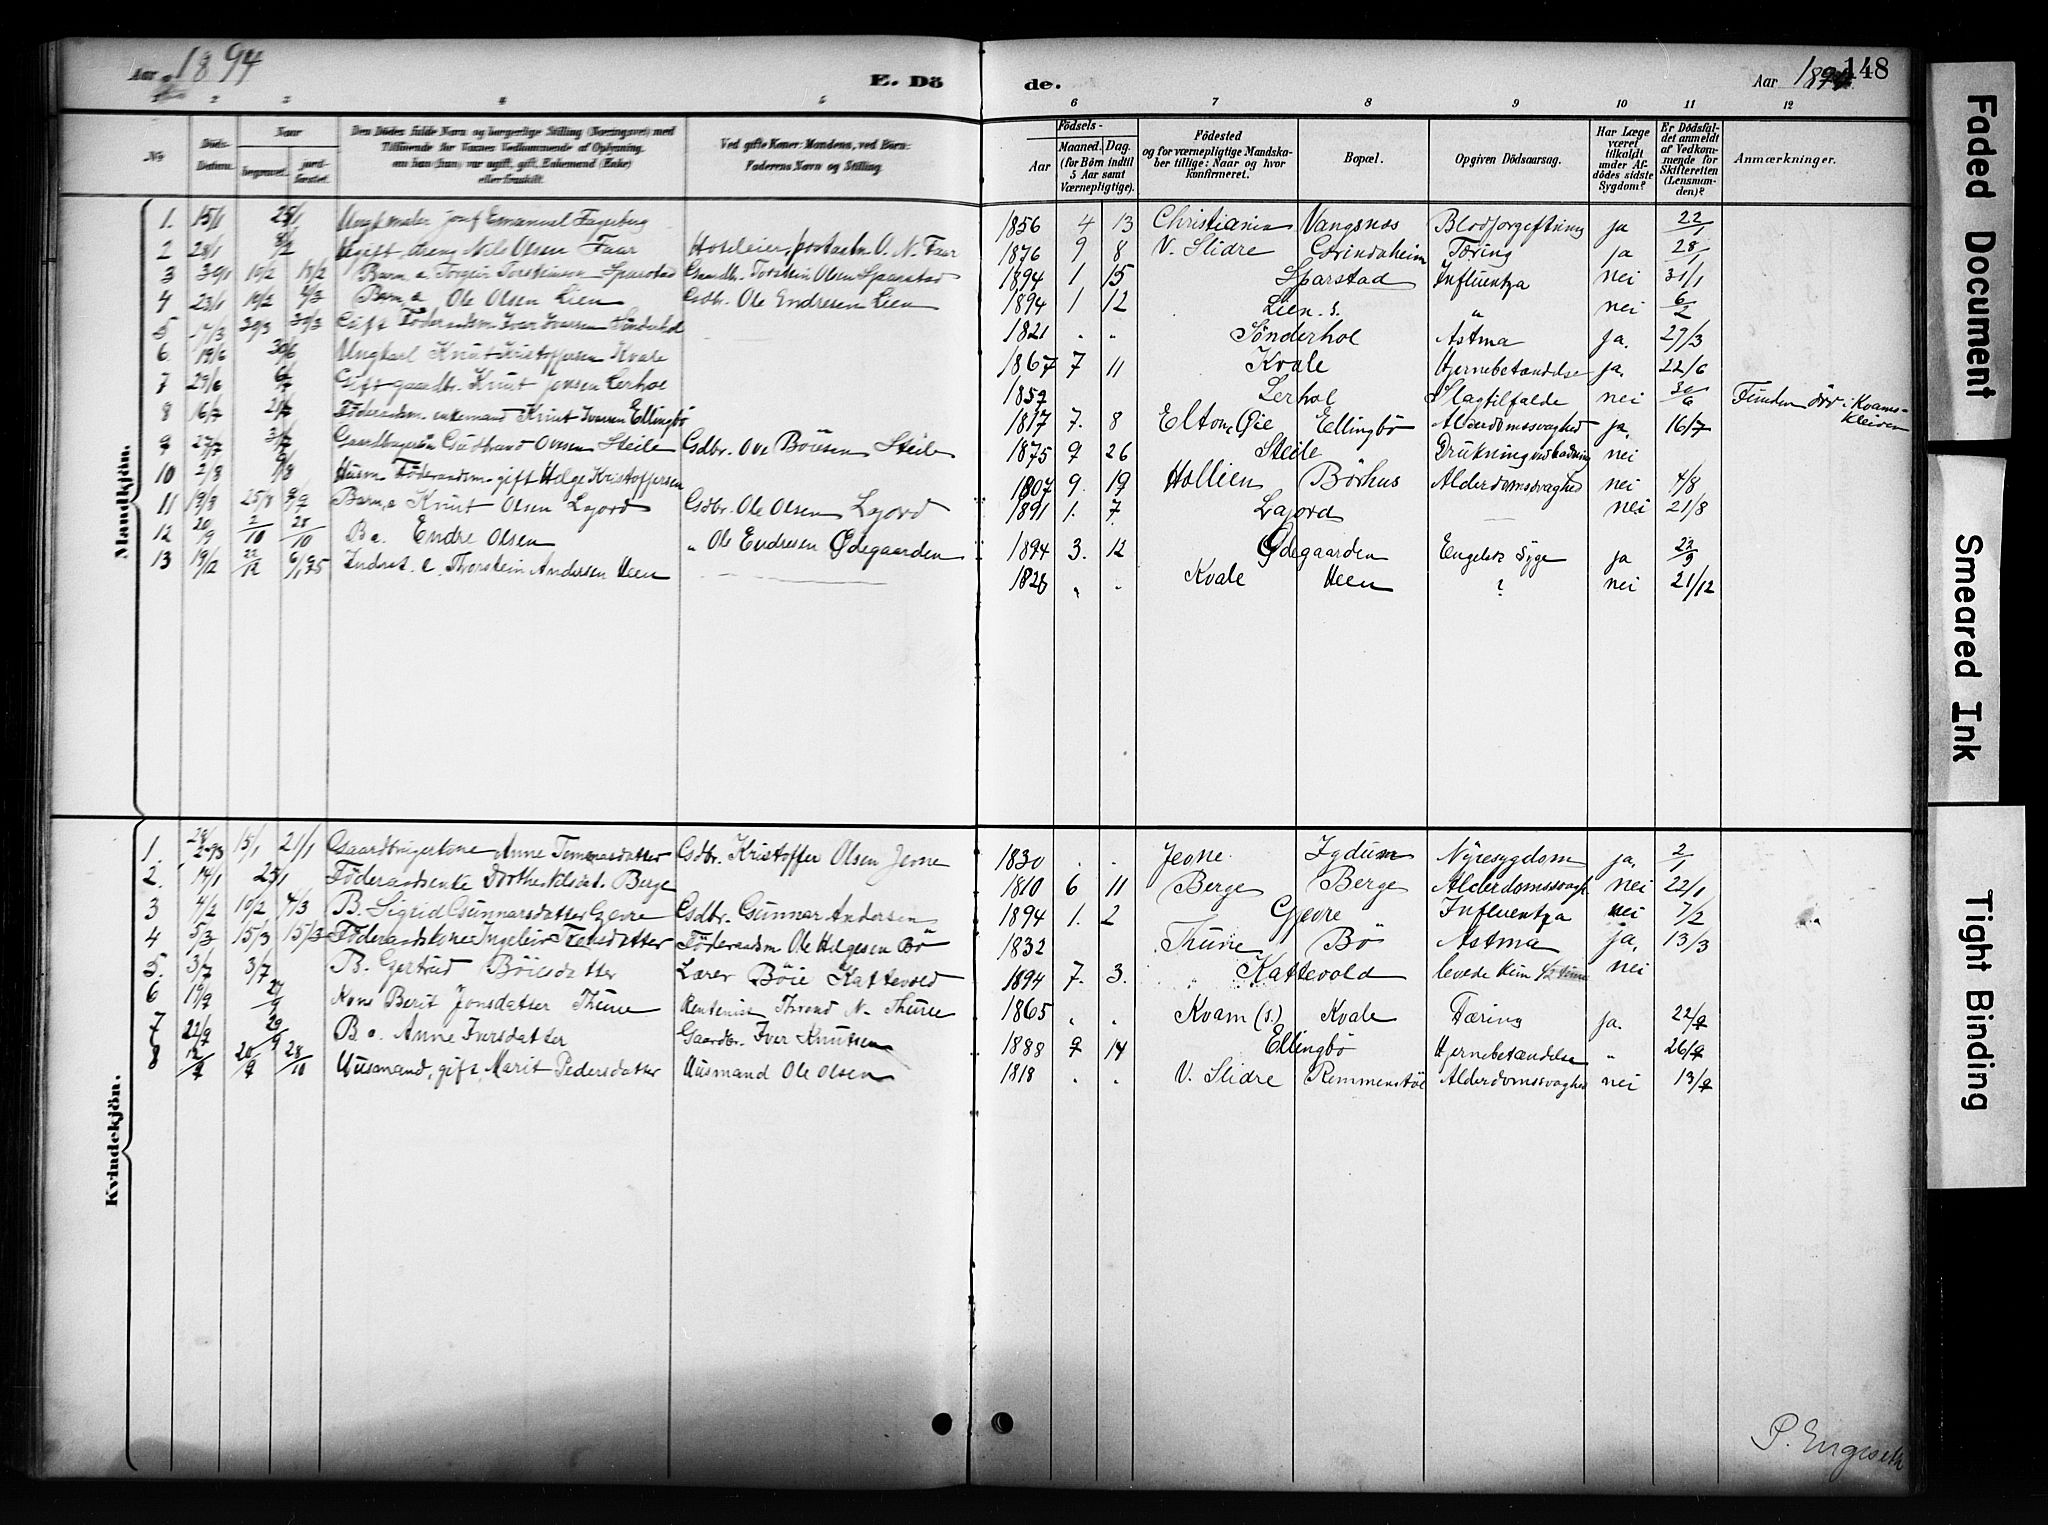 Aar 1894
E. Dö
de.
Aar 1894.
148
1 2 3 4 5 6 7 8 9 10 11 12
No
Döds-Datum.
Naar
begravet.
jord-fæstet.
Den Dödes fulde Navn og borgerlige Stilling (Næringsvei) med Tilföiende for Voxnes Vedkommende af Oplysning, om han (hun) var ugift, gift, Enkemand (Enke) eller fraskilt.
Ved gifte Koner: Mandens, ved Börn: Faderens Navn og Stilling.
Födsels-
Aar
Maaned. Dag.
(for Börn indtil 5 Aar samt Værnepligtige).
Födested og for værnepligtige Mandskaber tillige: Naar og hvor konfirmeret.
Bopæl.
Opgiven Dödsaarsag.
Har Læge været tilkaldt under Afdödes sidste Sygdom?
Er Dödsfaldet anmeldt af Vedkommende for Skifteretten (Lensmanden)?
Anmærkninger.
Mandkjön.
1. 15/1 25/1 Ungk maler Josef Emanuel Fageberg 1856 4 13 Christiania Vangsnes Blodforgiftning ja 22/1
2 28/1 8/2 Ugift dreng Nils Olsen Faar Hoteleier, O. N. Faar 1876 9 8 V. Slidre Grindaheim Tæring ja 28/1
3 30/1 10/2 18/2 Barn, e Torgeir Torsteinsen Sparstad Gaardbr. Torstein Olsen Sparstad 1894 1 15 Sparstad Influentza nei 31/1
4 23/1 10/2 4/3 Barn, e Ole Olsen Lien Gdbr. Ole Endresen Lien 1894 1 12 Lien s. " nei 6/2
5 17/3 30/3 30/3 Gift Föderaadsm Iver Iversen Sönderhol 1821 " " Sönderhol Astma ja. 27/3
6. 19/6 30/6 Ungkarl Knut Kristoffersen Kvale 1867 7 11 Kvale Hjernebetændelse ja. 22/6
7 29/6 6/7 Gift gaardbr. Knut Jensen Lerhol 1852 Lerhol Slagtilfælde nei 30/6 Funden död i Kvams-kleiven
8 16/7 21/7 Föderaadsm. enkemand Knut Iversen Ellingbö 1817 7. 8 Elton, Öie Ellingbö Alderdomssvaghed ja. 16/7
9 27/7 31/7 Gaardbrugersön Gudbrand Ovesen Steile Gdbr. Ove Böiesen Steile 1875 9 26 Steile Drukning ved badning nei
10 2/8 9/8 Husm. Föderaadsm. gift Helge Kristoffersen 1807 9. 19 Hollien Börhus Alderdomssvaghed nei 4/8
11 19/8 25/8 9/9 Barn, e Knut Olsen Lajord Gdbr. Ole Olsen Lajord 1891 1. 7. Lajord — nei 21/8
12 20/9 2/10 28/10 B e. Endre Olsen " Ole Endresen Ødegaarden 1894 3. 12 Ødegaarden Engelsk Syge ja 22/9
13 19/12 22/12 6/1 95 Inderst. e. Thorstein Andersen Heen 1826 " " Kvale Heen ? nei 21/12
Kvindekjön.
1. 29/12 93 15/1 21/1 Gaardbrugerkone Anne Tommasdatter Gdbr. Kristoffer Olsen Jevne 1830 . . Jevne Igdum Nyresygdom ja. 2/1
2. 14/1 25/1 Föderaadsenke Dorthe Nilsdat. Berge 1810 6 11 Berge Berge Alderdomssvagh. nei 22/1
3 4/2 10/2 4/3 B. Sigrid Gunnarsdatter Gjevre Gdbr. Gunnar Andersen 1894 1. 2 Gjevre Influentza nei 7/2
4 5/3 15/3 15/3 Föderaadskone Ingeleiv Trensdatter Föderaadsm Ole Helgesen Bö 1832 Thune Bö Astma ja. 13/3
5. 3/7 3/7 B. Gertrud Böiesdatter Lærer Böie Kattevold 1894 7. 3. " Kattevold levede kun 1/2 time nei
6 19/9 27/9 Kone Berit Jonsdatter Thune Rentenist Thrond N. Thune 1865 " " Kvam (s.) Kvale Tæring ja. 22/9
7 22/9 29/9 B e. Anne Iversdatter Gaardbr. Iver Knutsen 1888 9 14 Ellingbö Hjernebetændelse " 26/9
8 12/9 20/9 28/10 Husmand, gift, Marit Pedersdatter Husmand Ole Olsen 1818 . . V. Slidre Remmenstöl Alderdomssvaghed nei 13/9
P. Engeseth
Faded Document
Smeared Ink
Tight Binding